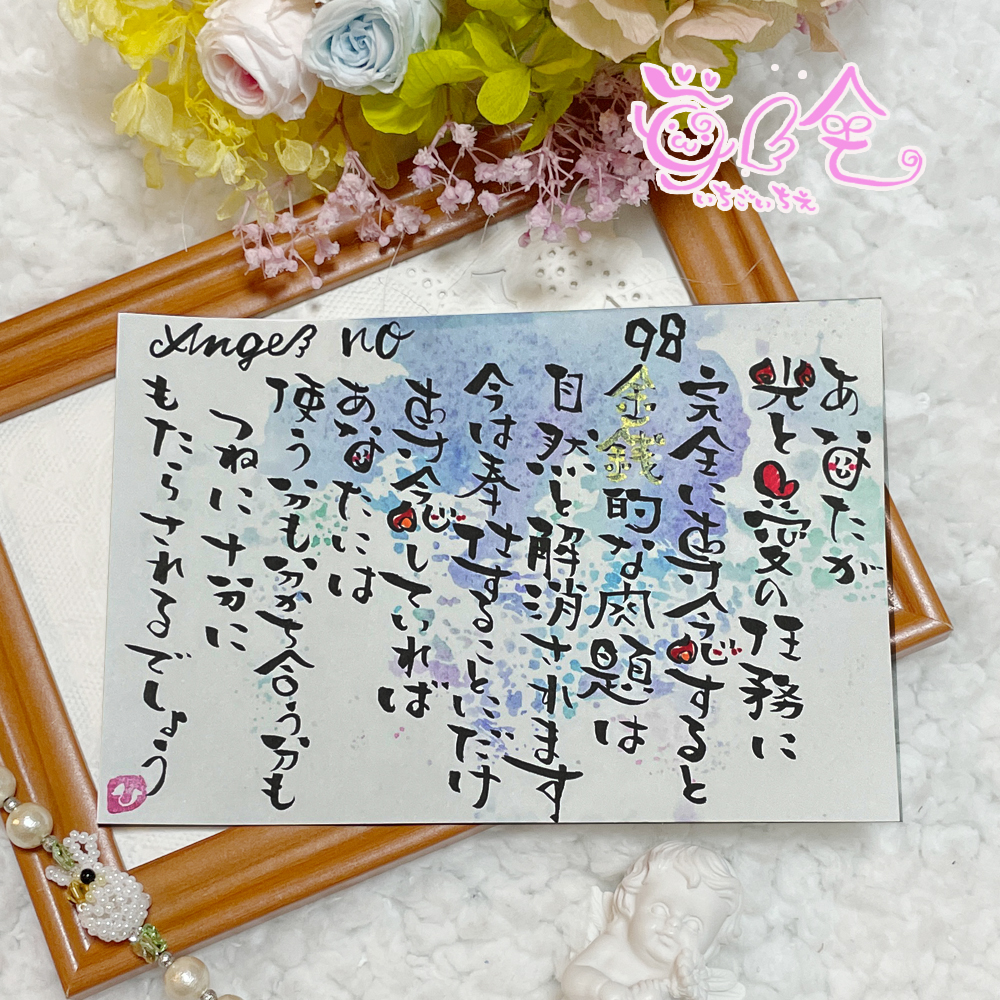 苺一会
いちごいちえ
Angel no 98
あなたが
光と愛の任務に
完全に専念すると
金銭的な問題は
自然と解消されます
今は奉仕することにだけ
専念していれば
あなたには
使う分も分かち合う分も
つねに十分に
もたらされるでしょう